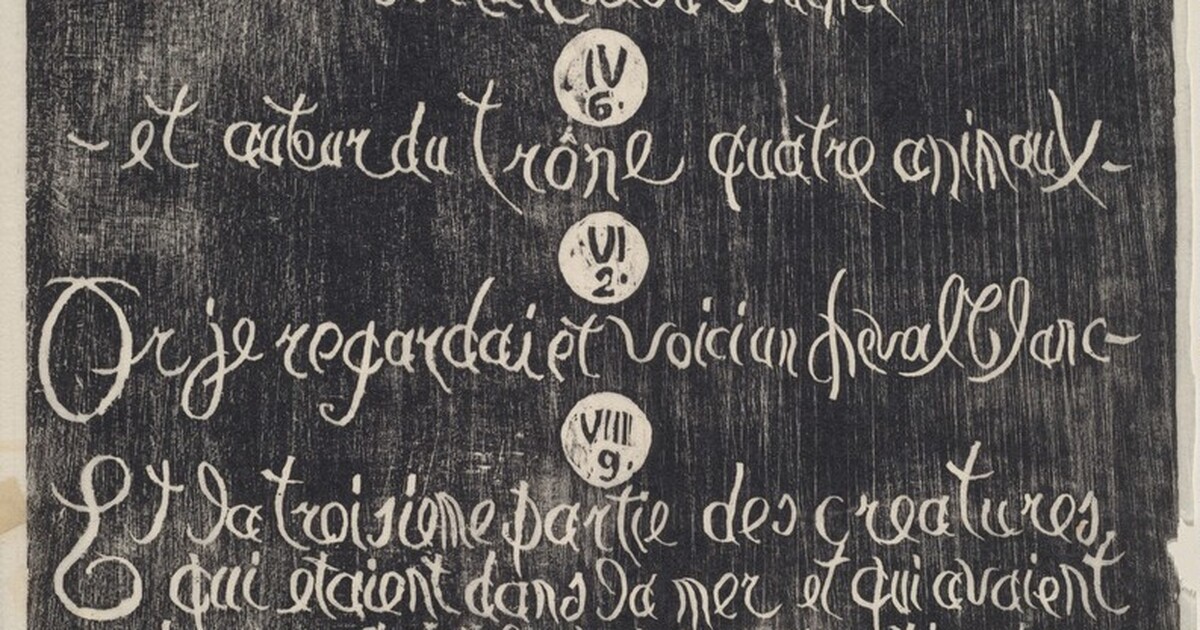 IV
6.
- et autour du trône quatre animaux -
VI
2.
Or je regardai et voici un cheval blanc -
VIII
9.
Et la troisieme partie des creatures,
qui etaient dans la mer et qui avaient